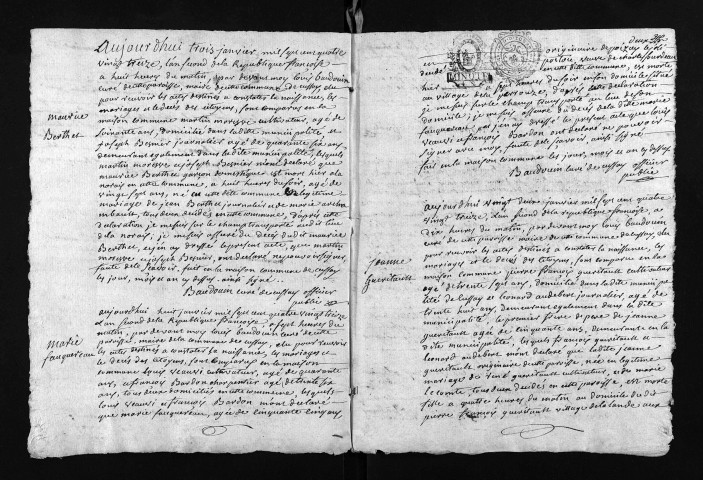 Aujourd'hui trois janvier mil sept cent quatre
vingt treize, l'an second de la République françoise
à huit heures du matin, par devant moy louis baudouin
curé de cette paroisse, maire de cette commune de cussay élu
pour recevoir les actes destinés à constater les naissances, les
mariages et les décès des citoyens, sont comparus en la
maison commune martin morisse cultivateur, agé de
soixante ans, domicilié dans la dite municipalité, et
joseph Besnier journalier agé de quarante six ans,
demeurant également dans la dite municipalité, lesquels
martin morisse et joseph Besnier m'ont déclaré que
maurice Berthet
maurice Berthet garçon domestique est mort hier à la
norais en cette commune, à huit heures du soir, agé de
vingt sept ans, né en cette commune en légitime
mariage de jean Berthet journalier et de marie
tous deux décédés en cette commune, d'après cette
déclaration je me suis sur le champ transporté au dit lieu
de la norais, je me suis assuré du décès du dit maurice
Berthet, et j'en ay dressé le présent acte, que martin
morisse et joseph Besnier, ont déclaré ne pouvoir signer,
faute de le scavoir, fait en la maison commune de cussay
les jour, mois et an cy dessus. ainsi signé
Baudouin curé de cussay officier
public
aujourd'huy huit janvier mil sept cent quatre vingt treize
l'an second de la République françoise, à sept heures du
matin, par devant moy louis baudouin curé de cette
marie fauquereau
paroisse, maire de la commune de cussay, élu pour recevoir
les actes destinés à constater les naissances, les mariages et
les décès des citoyens, sont comparus en la maison
commune louis veauvi cultivateur, agé de quarante
ans, et francois Bardon charpentier agé de trente six
ans, tous deux domiciliés en cette commune, lesquels
louis veauvi et francois Bardon m'ont déclaré
que marie fauquereau, agée de cinquante cinq ans,
deux
originaire de
veuve de charles
décédé en cette dite commune, est morte
hier heures du soir en son domicile situé
au village de la d'après cette déclaration
je me suis sur le champ transporté au lieu de son
domicile, je me suis assuré du décès de la dite marie
fauquereau, et j'en ai dressé le présent acte que louis
veauvi et francois Bardon ont déclaré ne pouvoir
signer avec moy, faute de le scavoir, ainsi signé
fait en la maison commune les jour, mois et an cy dessus
Baudouin curé de cussay officier
public
aujourd'hui vingt deux janvier mil sept cent quatre
vingt treize, l'an second de la république françoise, à
dix heures du matin, par devant moy louis baudouin
curé de cette paroisse maire de cette commune de cussay, élu
pour recevoir les actes destinés à constater les naissances, les
mariages et le décès des citoyens, sont comparus en la
jeanne Gueritault
maison commune pierre francois gueritault cultivateur
agé de trente sept ans, domicilié dans la dite municipa
lité de cussay et leonard audebert journalier, agé de
trente huit ans, demeurant également dans la dite
municipalité, le premier frère de jeanne
gueritault agé de cinquante ans, demeurante en la
dite municipalité, lesquels francois gueritault et
leonard audebert m'ont déclaré que la dite jeanne
gueritault originaire de cette paroisse, née en légitime
mariage de rené gueritault cultivateur, et de marie
le comte, tous deux décédés en cette paroisse, est morte
fille à quatre heures du matin au domicile du dit
pierre francois gueritault village de la lande aux